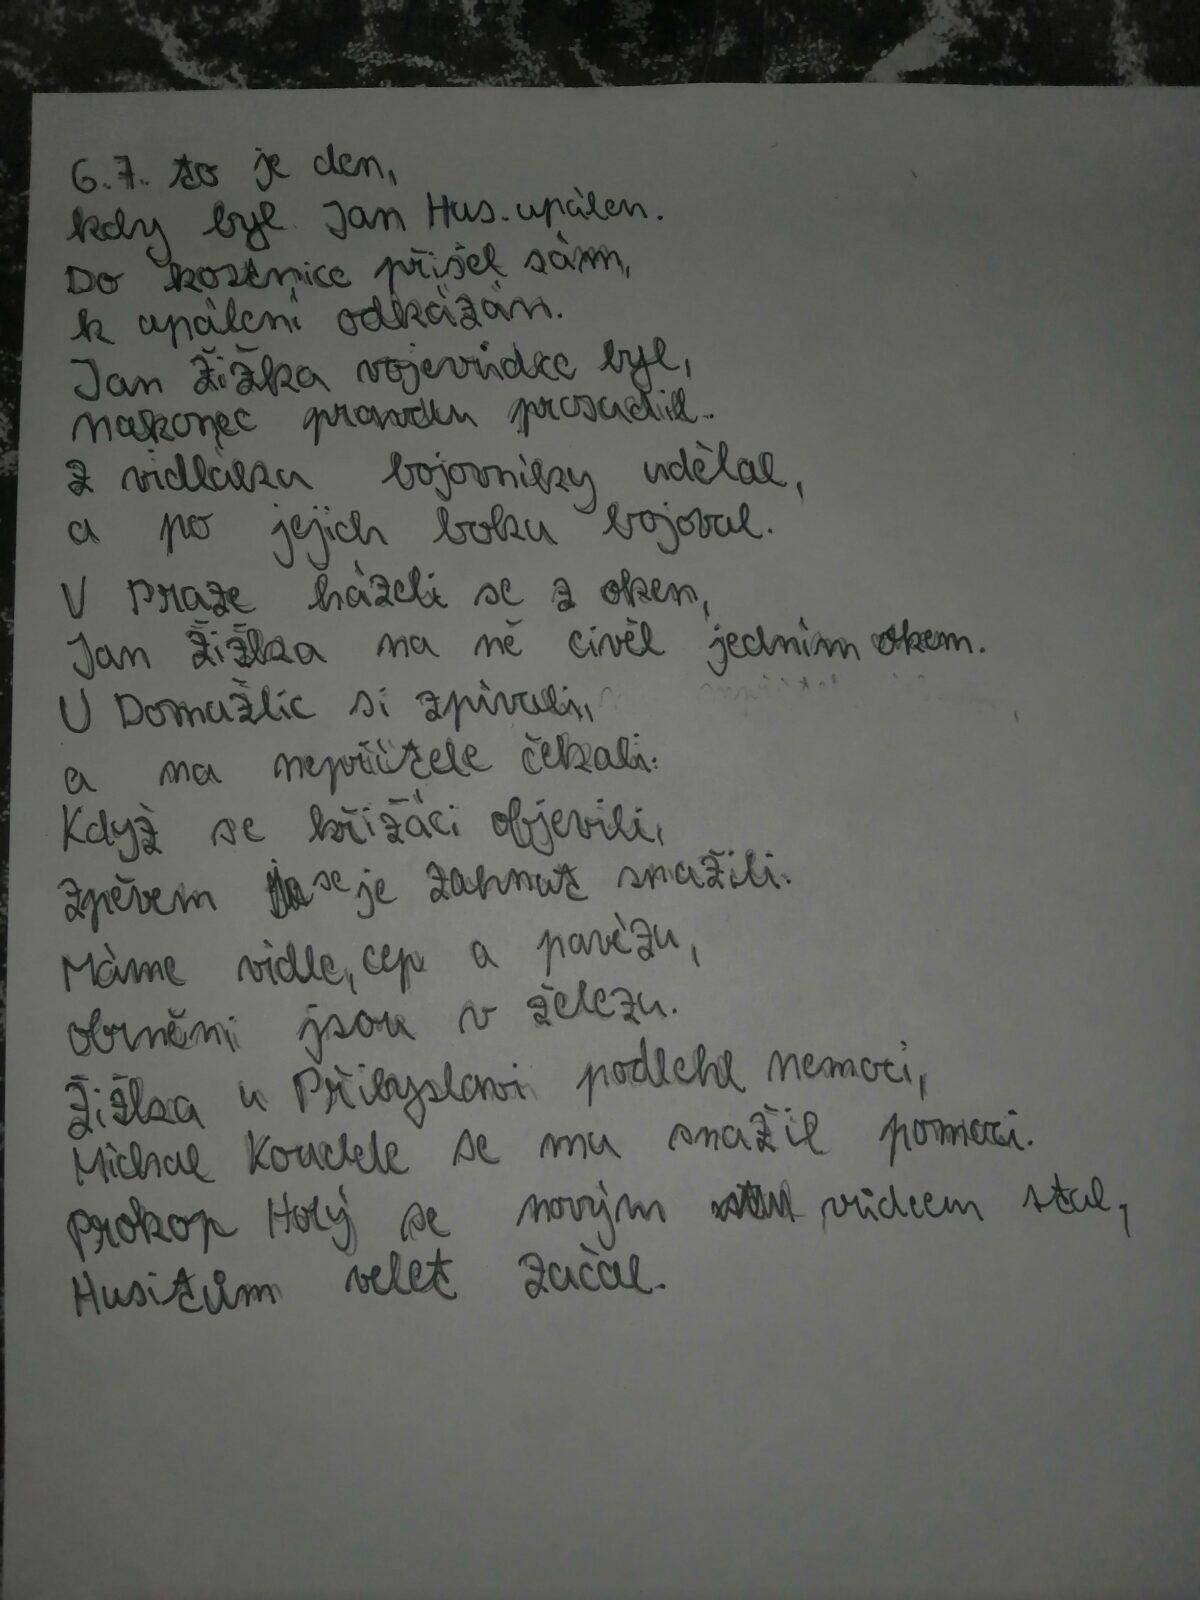 6.7. to je den,
kdy byl Jan Hus upálen.
Do kostnice přišel sám,
k upálení odkázán.
Jan Žižka vojevůdce byl,
nakonec pravdu prosadil.
Z vidláku bojovníky udělal,
a po jejich boku bojoval.
V Praze házeli se z oken,
Jan Žižka na ně civěl jedním okem.
U Domažlic si zpívali,
a na nepřítele čekali.
Když se křižáci objevili,
zpěvem se je zahnat snažili.
Máme vidle, cep a pavézu,
obrněni jsou v železu.
Žižka u Přibyslavi podlehl nemoci,
Michal Koudele se mu snažil pomoci.
Prokop Holý se novým vůdcem stal,
Husitům velet začal.